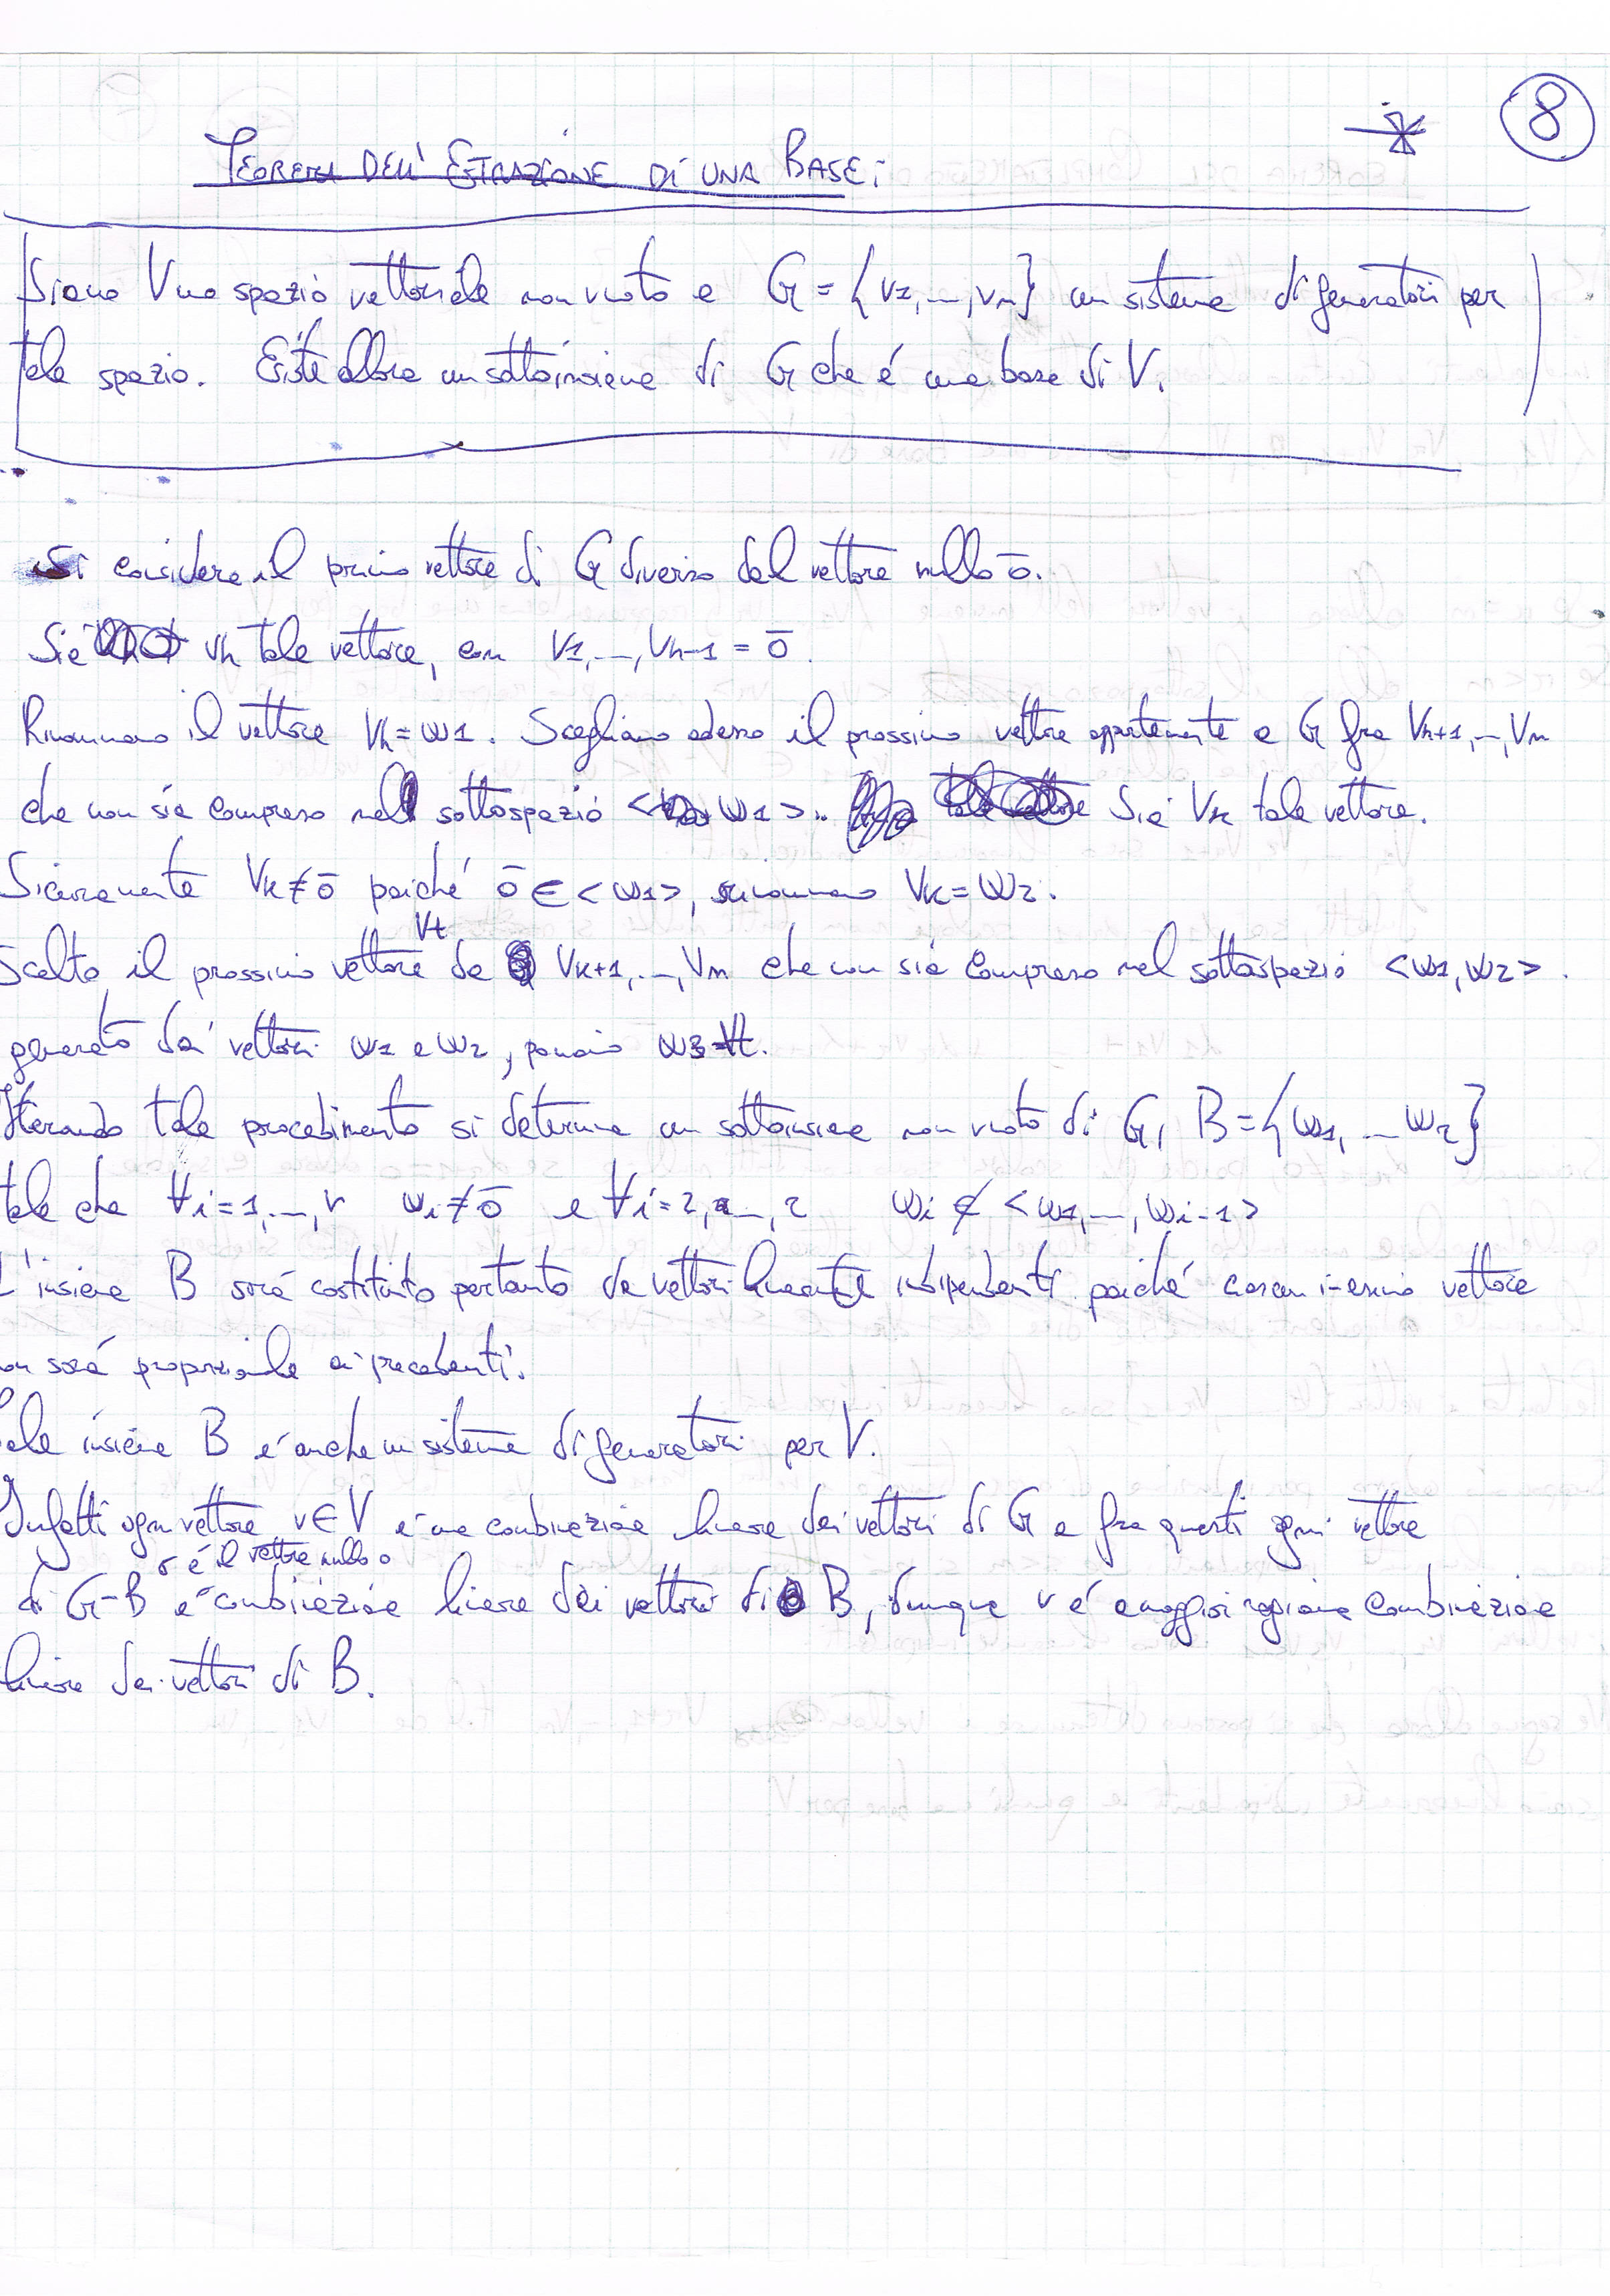 8
TEOREMA DELL'ESTRAZIONE DI UNA BASE:
Siano V uno spazio vettoriale non vuoto e G = {v1, ..., vn} un sistema di generatori per
tale spazio. Esiste allora un sottoinsieme di G che é una base di V.
Si considera il primo vettore di G diverso dal vettore nullo ō.
Sia vh tale vettore, con v1, ..., vh-1 = ō.
Rinominiamo il vettore vh = w1. Scegliamo adesso il prossimo vettore appartenente a G fra vh+1, ..., vn
che non sia compreso nel sottospazio <w1>. Sia vk tale vettore.
Sicuramente vk ≠ ō poiché ō ∈ <w1>, rinominiamo vk = w2.
Scelto il prossimo vettore vt da vk+1, ..., vn che non sia compreso nel sottospazio <w1, w2>
generato dai vettori w1 e w2, poniamo w3 = vt.
Iterando tale procedimento si determina un sottoinsieme non vuoto di G, B = {w1, ... wr}
tale che ∀i = 1, ..., r wi ≠ ō e ∀i = 2, ..., r wi ∉ <w1, ..., wi-1>
L'insieme B sará costituito pertanto da vettori linearmente indipendenti poiché ciascun i-esimo vettore
non sará proporzionale ai precedenti.
Tale insieme B é anche un sistema di generatori per V.
Infatti ogni vettore v ∈ V é una combinazione lineare dei vettori di G e fra questi ogni vettore
di G-B o é il vettore nullo o é combinazione lineare dei vettori di B, dunque v é a maggior ragione combinazione
lineare dei vettori di B.